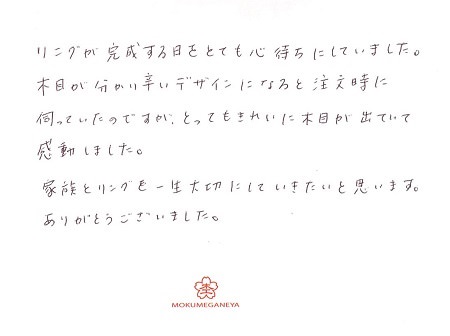 リングが完成する日をとても心待ちにしていました。
木目が分かり辛いデザインになると注文時に
伺っていたのですが、とってもきれいに木目が出ていて
感動しました。
家族とリングを一生大切にしていきたいと思います。
ありがとうございました。
MOKUMEGANEYA